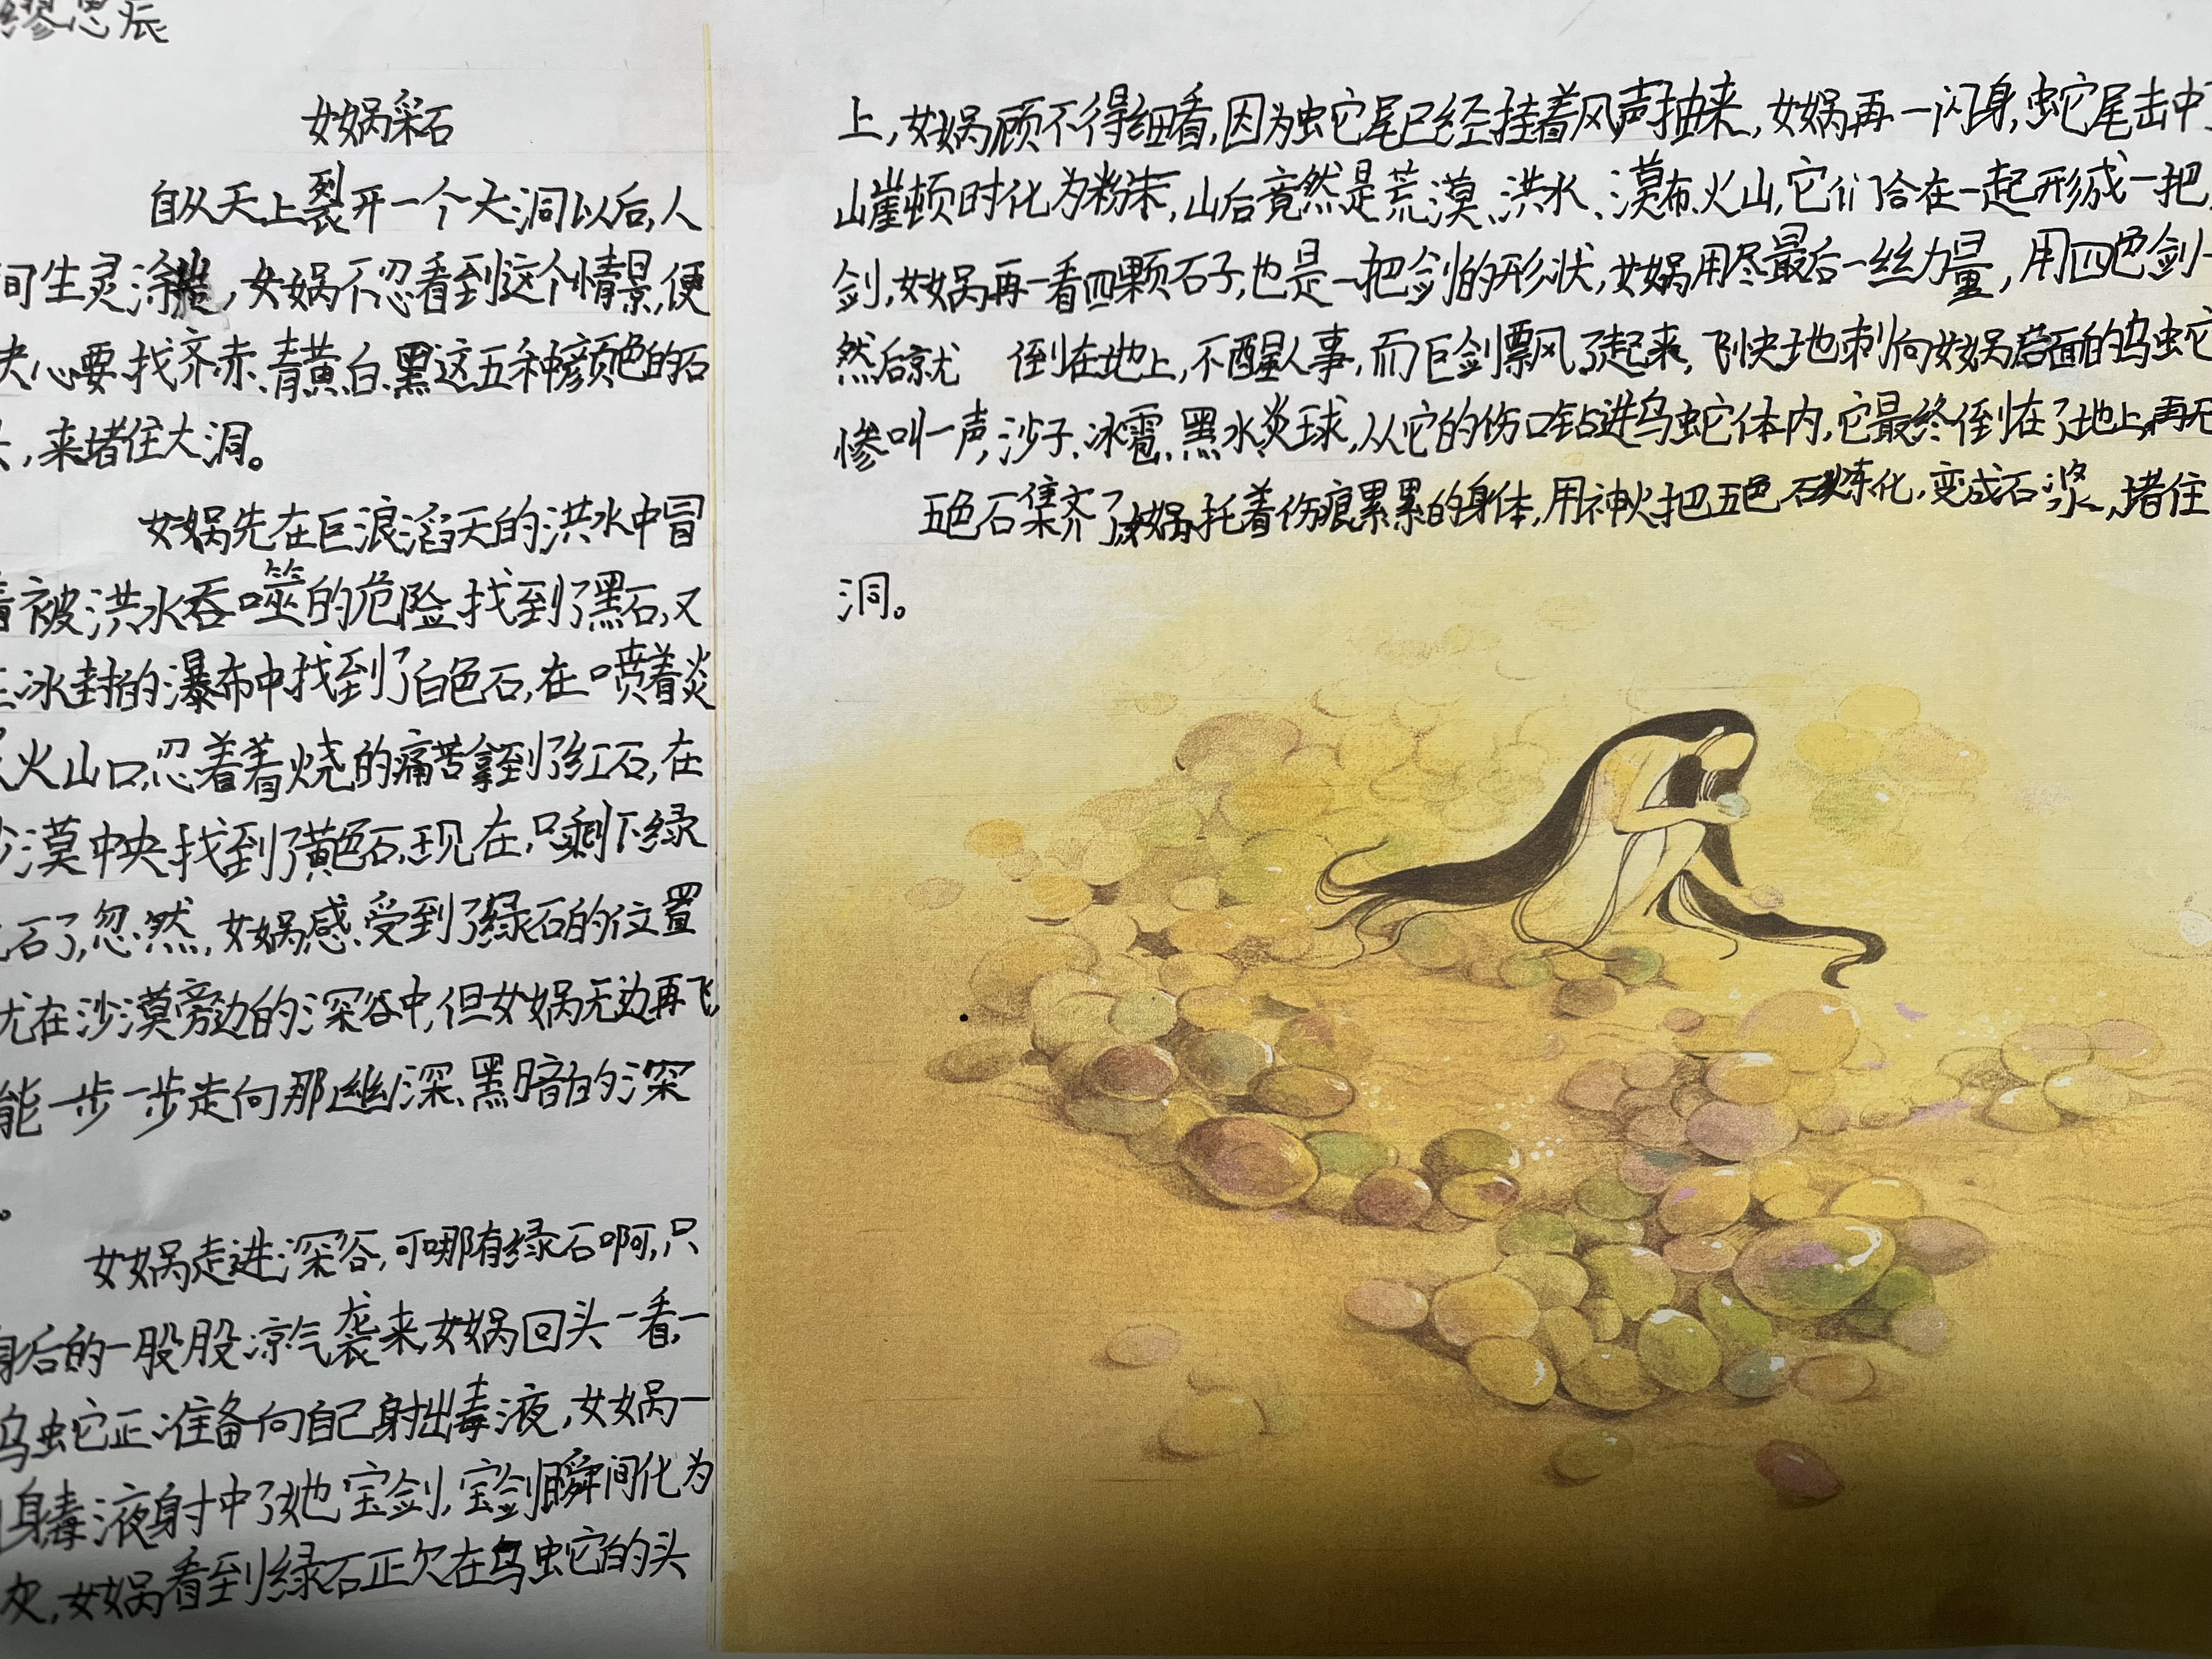 缪思辰
女娲采石
自从天上裂开一个大洞以后,人
间生灵涂,女娲不忍看到这个情景,便
决心要找齐赤、青黄白、黑这五种颜色的石
,来堵住大洞。
女娲先在巨浪滔天的洪水中冒
着被洪水吞噬的危险找到了黑石,又
在冰封的瀑布中找到了白色石,在喷着炎
火山口,忍着着烧的痛苦拿到了红石,在
沙漠中央找到了黄色石,现在,只剩下绿
石了,忽然,女娲感受到了绿石的位置
就在沙漠旁边的深谷中,但女娲无边再飞,
能一步一步走向那幽深、黑暗的深
。
女娲走进深谷,可哪有绿石啊,只
身后的一股股凉气袭来,女娲回头一看,一
乌蛇正准备向自己射出毒液,女娲一
身毒液射中了她宝剑,宝剑瞬间化为
灰,女娲看到绿石正欠在乌蛇的头
上,女娲顾不得细看,因为蛇尾已经挂着风声抽来,女娲再一闪身,蛇尾击中了
山崖顿时化为粉末,山后竟然是荒漠、洪水、漠布火山,它们合在一起形成一把
剑,女娲再一看四颗石子,也是一把剑的形状,女娲用尽最后一丝力量,用四色剑一
然后就 倒在地上,不醒人事,而巨剑飘了起来,飞快地刺向女娲后面的乌蛇
惨叫一声,沙子、冰雹、黑水炎球,从它的伤口钻进乌蛇体内,它最终倒在了地上,再无
五色石集齐了,女娲托着伤痕累累的身体,用神火把五色石炼化,变成石浆,堵住
洞。